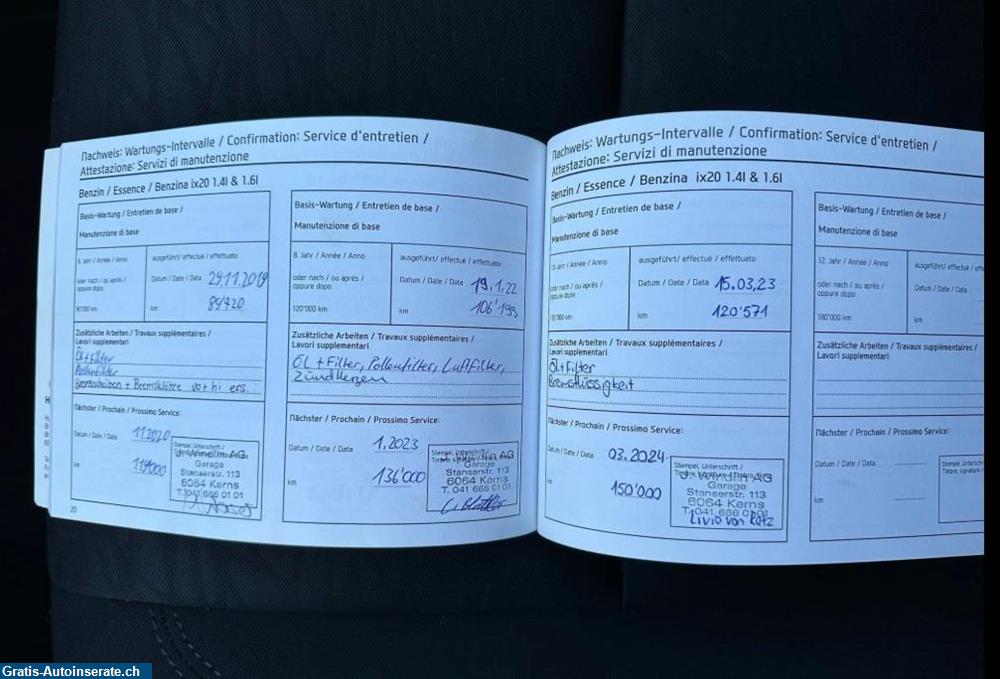 Nachweis: Wartungs-Intervalle / Confirmation: Service d'entretien /
Attestazione: Servizi di manutenzione
Benzin / Essence / Benzina ix20 1.4l & 1.6l
Basis-Wartung / Entretien de base /
Manutenzione di base
6. Jahr / Année / Anno
oder nach / ou après /
oppure dopo
90'000 km
ausgeführt / effectué / effettuato
Datum / Date / Data 29.11.2019
km 89'420
Zusätzliche Arbeiten / Travaux supplémentaires /
Lavori supplementari
Öl + Filter
Pollenfilter
Bremsscheiben + Bremsklötze vo + hi ers.
Nächster / Prochain / Prossimo Service:
Datum / Date / Data 11.2020
km 119'000
Stempel, Unterschrift /
AG
Garage
Stanserstr. 113
6064 Kerns
T. 041 666 01 01
20
Basis-Wartung / Entretien de base /
Manutenzione di base
8. Jahr / Année / Anno
oder nach / ou après /
oppure dopo
120'000 km
ausgeführt / effectué / effettuato
Datum / Date / Data 19.1.22
km 106'193
Zusätzliche Arbeiten / Travaux supplémentaires /
Lavori supplementari
Öl + Filter, Pollenfilter, Luftfilter,
Zündkerzen
Nächster / Prochain / Prossimo Service:
Datum / Date / Data 1.2023
km 136'000
Stempel, Unterschrift /
AG
Garage
Stanserstr. 113
6064 Kerns
T. 041 666 01 01
Nachweis: Wartungs-Intervalle / Confirmation: Service d'entretien /
Attestazione: Servizi di manutenzione
Benzin / Essence / Benzina ix20 1.4l & 1.6l
Basis-Wartung / Entretien de base /
Manutenzione di base
Jahr / Année / Anno
oder nach / ou après /
oppure dopo
km
ausgeführt / effectué / effettuato
Datum / Date / Data 15.03.23
km 120'571
Zusätzliche Arbeiten / Travaux supplémentaires /
Lavori supplementari
Öl + Filter
Bremsflüssigkeit
Nächster / Prochain / Prossimo Service:
Datum / Date / Data 03.2024
km 150'000
Stempel, Unterschrift /
AG
Garage
Stanserstr. 113
6064 Kerns
T. 041 666 01 01
Livio von Rotz
Basis-Wartung / Entretien de base /
Manutenzione di base
12. Jahr / Année / Anno
oder nach / ou après /
oppure dopo
180'000 km
ausgeführt / effectué /
Datum / Date / Data
km
Zusätzliche Arbeiten / Travaux supplémentaires /
Lavori supplementari
Nächster / Prochain / Prossimo Service:
Datum / Date / Data
km
Stempel,
Gratis-Autoinserate.ch